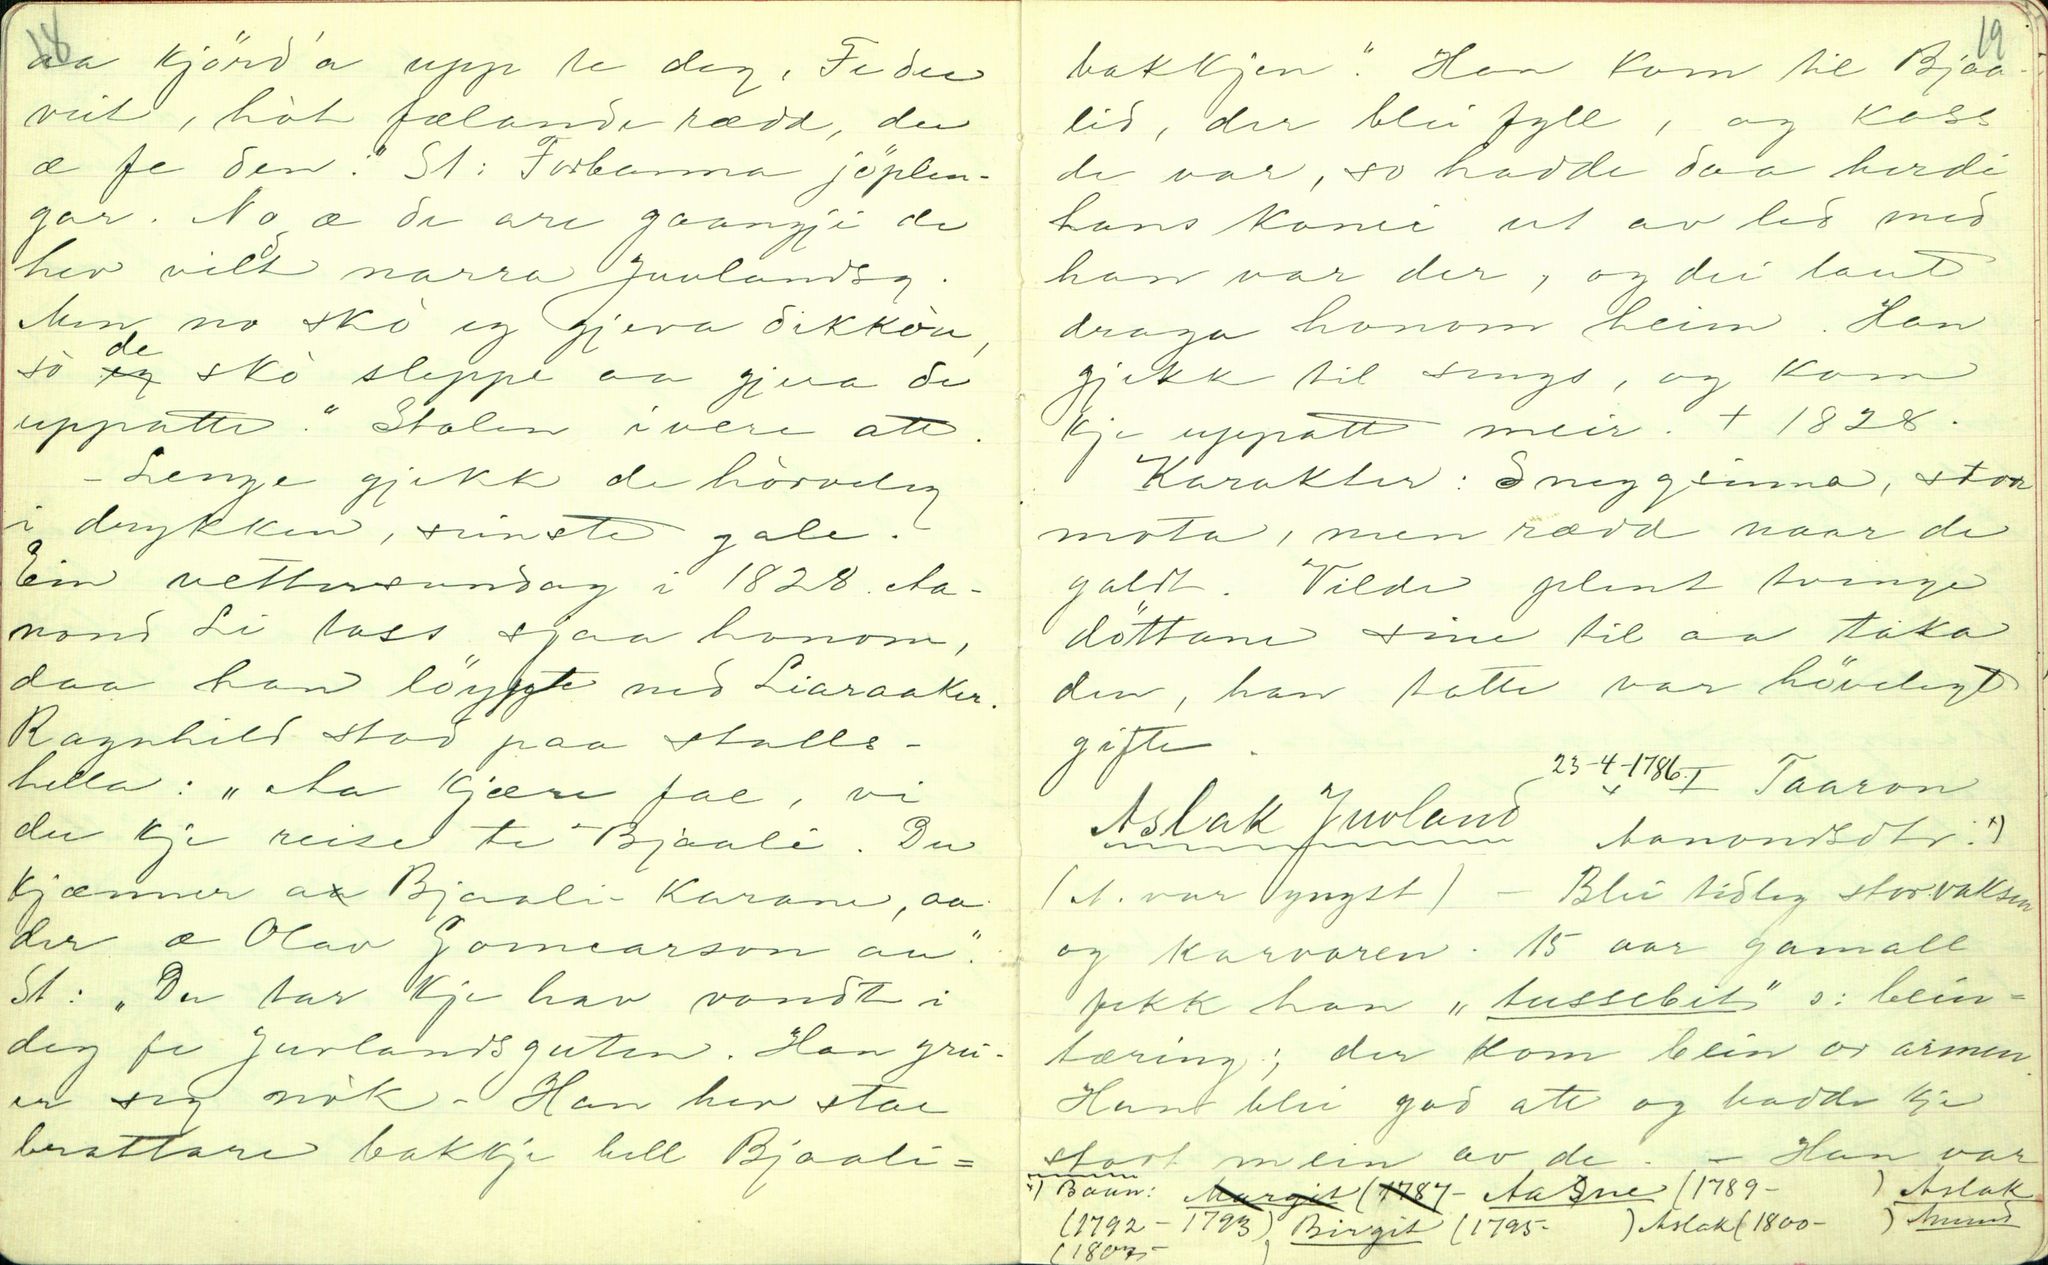 18
aa kjörd'a upp te deg, Fedee
veit, hòt fælande rædd, du
æ fe den." St: Forbanna jöplen-
gar. No æ de are gaangji de
hev vilt narra Juvlandsg.
Men no skò eg gjeva dikkòn,
so de skò sleppe aa gjera de
uppatte." Stolen ivere atte.
- Lenge gjekk de hòrveleg
i drykken, sinste gale.
Ein vettersundag i 1828. Aa-
nond Li tass sjaa honom,
daa han löypte ned Liaraaker.
Ragnhild stod paa stalls-
hella: „Aa kjære fae, vi
du kje reise te Bjaali. Du
kjænner aa Bjaali-karane, aa
der æ Olav Gomearson au."
St: „Du tar kje hav vondt i
deg fe Juvlandsguten. Han gru-
er seg nòk - Han hev stae
brattare bakkje hell Bjaali=
19
bakkjen." Han kom til Bjaa-
lid, der blei fyll, og koss
de var, so hadde daa herdi
hans komei ut av led med
han var der, og dei laut
draga honom heim. Han
gjekk til sengs, og kom
kje uppatt meir. + 1828.
Karakter: Snyggsinna, stor
mota, men rædd naar de
galdt. Vilde plent tvinge
döttane sine til aa taka
den, han totte var höveligt
gifte.
Aslak Juvland 23-4-1786 I Taaron
Aanondsdtr. x)
(A. var yngst) - Blei tidleg storvaksen
og karvoren. 15 aar gamall
fekk han „tussebit" ɔ: bein-
tæring; der kom bein or armen.
Han blei god att og hadde kje
stort mein av de. - Han var
x) Baan: Margit (1787- Aasne (1789- ) Aslak
(1792 - 1793) Birgit (1795- ) Aslak (1800- ) Anund
(1807- )